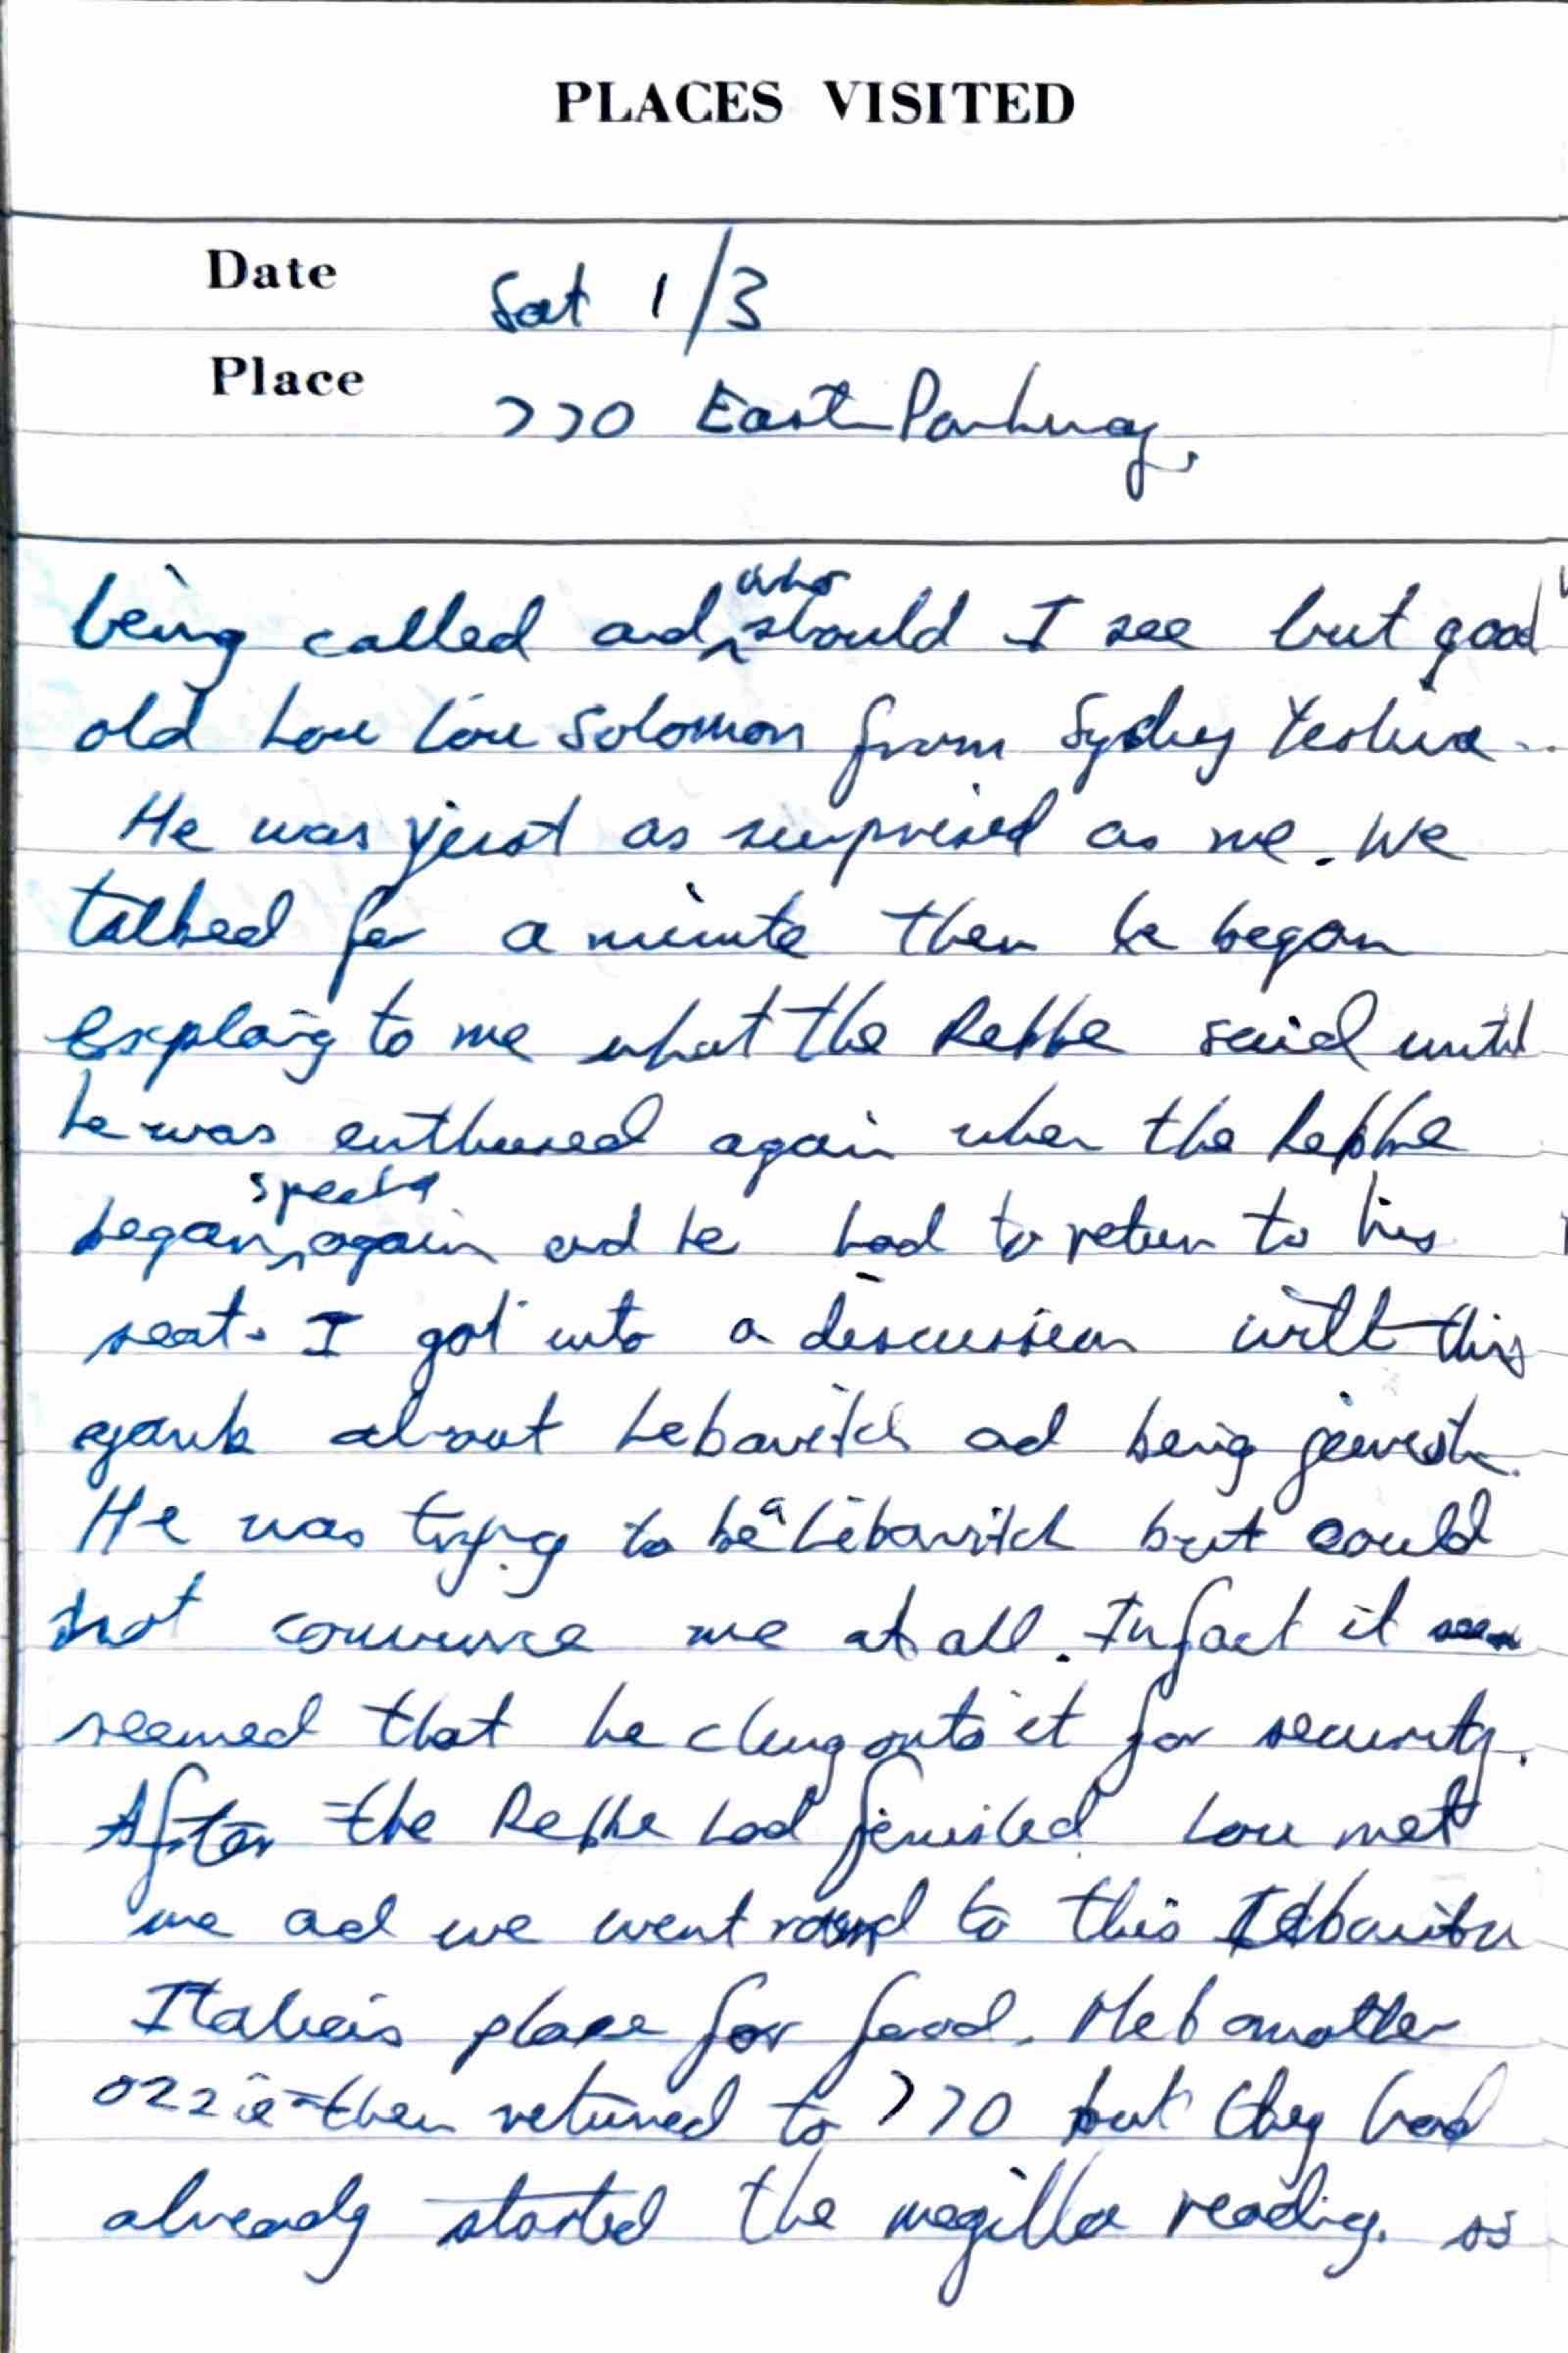 PLACES VISITED
Date Sat 1/3
Place 770 East Parkway,
being called and who should I see but good
old Lou Lou Solomon from Sydney Yeshiva..
He was just as surprised as me. We
talked for a minute then he began
explaing to me what the Rebbe said until
he was enthused again when the Rebbe
began speakg again and he had to return to his
seat. I got into a discussion with this
yank about Lebavitch ad being jewish.
He was tryg to be a Lebavitch but could
not convince me at all. Infact it
seemed that he clung onto it for security.
After the Rebbe had finished Lou met
me ad we went round to this
Italian place for food. Met another
ozzie then returned to 770 but they had
already started the megilla readig. so